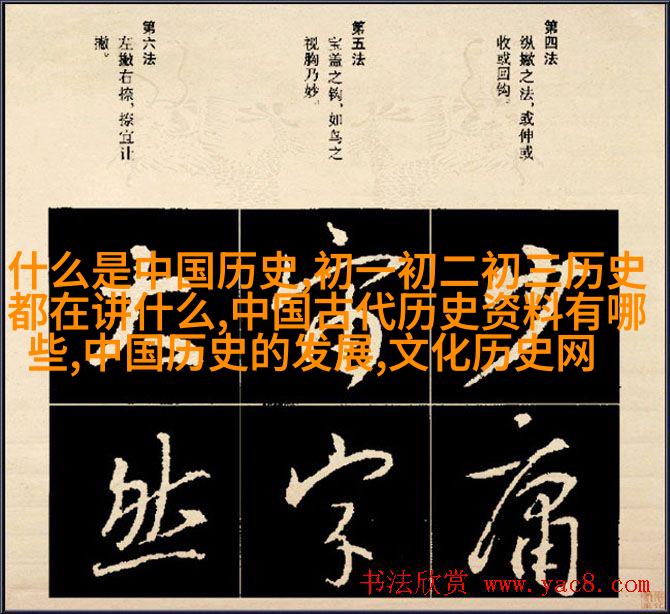 第四法
纵撇之法，或伸或
收或回钩。
第五法
宝盖之钩，如鸟之
视胸乃妙。
第六法
左撇右捺，捺宜让
撇。
什么是中国历史,初一初二初三历史
都在讲什么,中国古代历史资料有哪
些,中国历史的发展,文化历史网
庸
字
然
书法欣赏 www.yac8.com